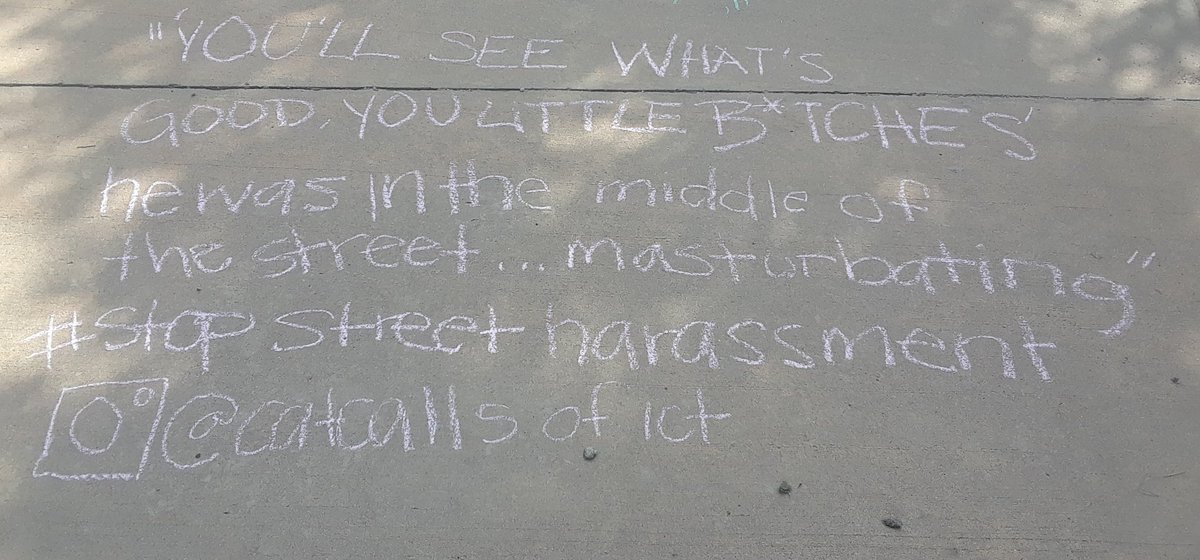 "'YOU'LL SEE WHAT'S
GOOD, YOU LITTLE B*TCHES'
he was in the middle of
the street... masturbating"
#stopstreetharassment
@catcallsofict